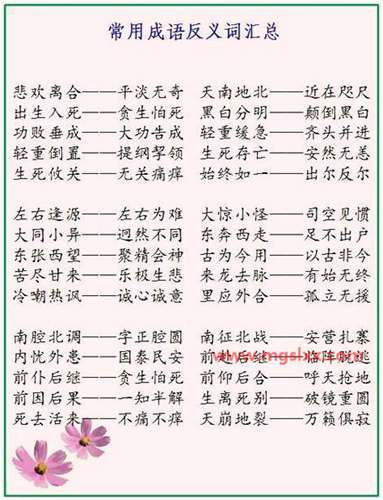 常用成语反义词汇总
悲欢离合——平淡无奇 天南地北——近在咫尺
出生入死——贪生怕死 黑白分明——颠倒黑白
功败垂成——大功告成 轻重缓急——齐头并进
轻重倒置——提纲挈领 生死存亡——安然无恙
生死攸关——无关痛痒 始终如一——出尔反尔
左右逢源——左右为难 大惊小怪——司空见惯
大同小异——迥然不同 东奔西走——足不出户
东张西望——聚精会神 古为今用——以古非今
苦尽甘来——乐极生悲 来龙去脉——有始无终
冷嘲热讽——诚心诚意 里应外合——孤立无援
南腔北调——字正腔圆 南征北战——安营扎寨
内忧外患——国泰民安 前赴后继——临阵脱逃
前仆后继——贪生怕死 前仰后合——呼天抢地
前因后果——一知半解 生离死别——破镜重圆
死去活来——不痛不痒 天崩地裂——万籁俱寂